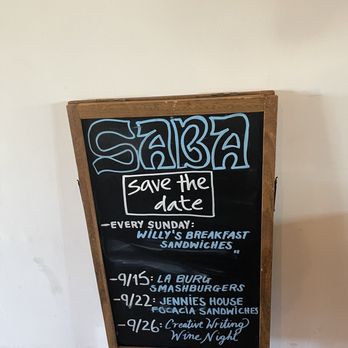 SABA
save the
date
-EVERY SUNDAY:
WILLY'S BREAKFAST
SANDWICHES
-9/15: LA BURG
SMASHBURGERS
-9/22: JENNIES HOUSE
FOCACIA SANDWICHES
-9/26: Creative Writing
Wine Night